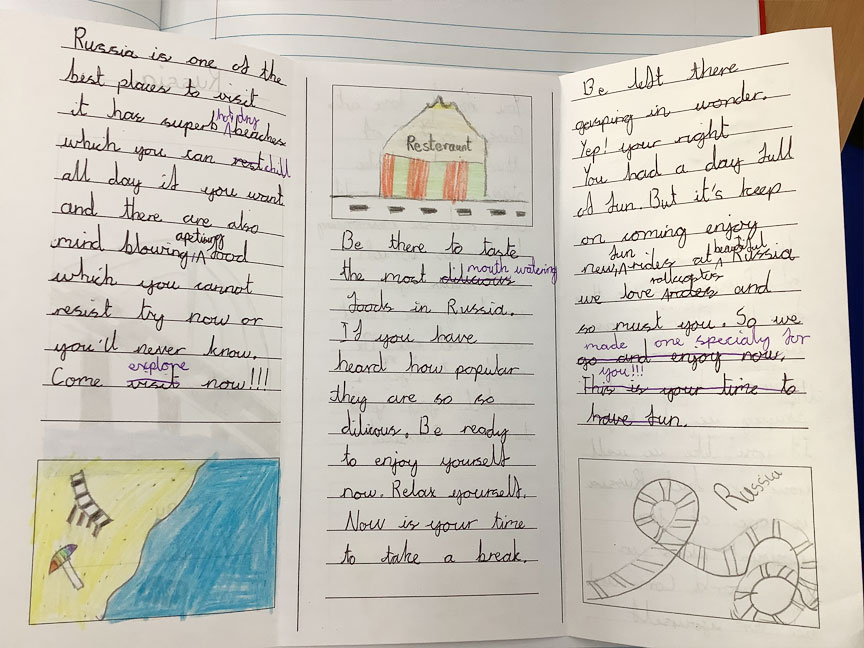 Russia is one of the
best places to visit
it has superb holiday beaches
which you can rest chill
all day if you want
and there are also
mind blowing, apetising food
which you cannot
resist try now or
you'll never know.
Come visit explore now!!!
Resteraunt
Be there to taste
the most dilicious mouth watering
foods in Russia.
If you have
heard how popular
they are so so
dilicous. Be ready
to enjoy yourself
now. Relax yourself.
Now is your time
to take a break.
Be left there
gasping in wonder.
Yep! your right
You had a day full
of fun. But it's keep
on coming enjoy
new fun rides at beautiful Russia
we love rides and
so must you. So we
made one specialy for
go and enjoy now.
you!!!
This is your time to
have fun.
Russia